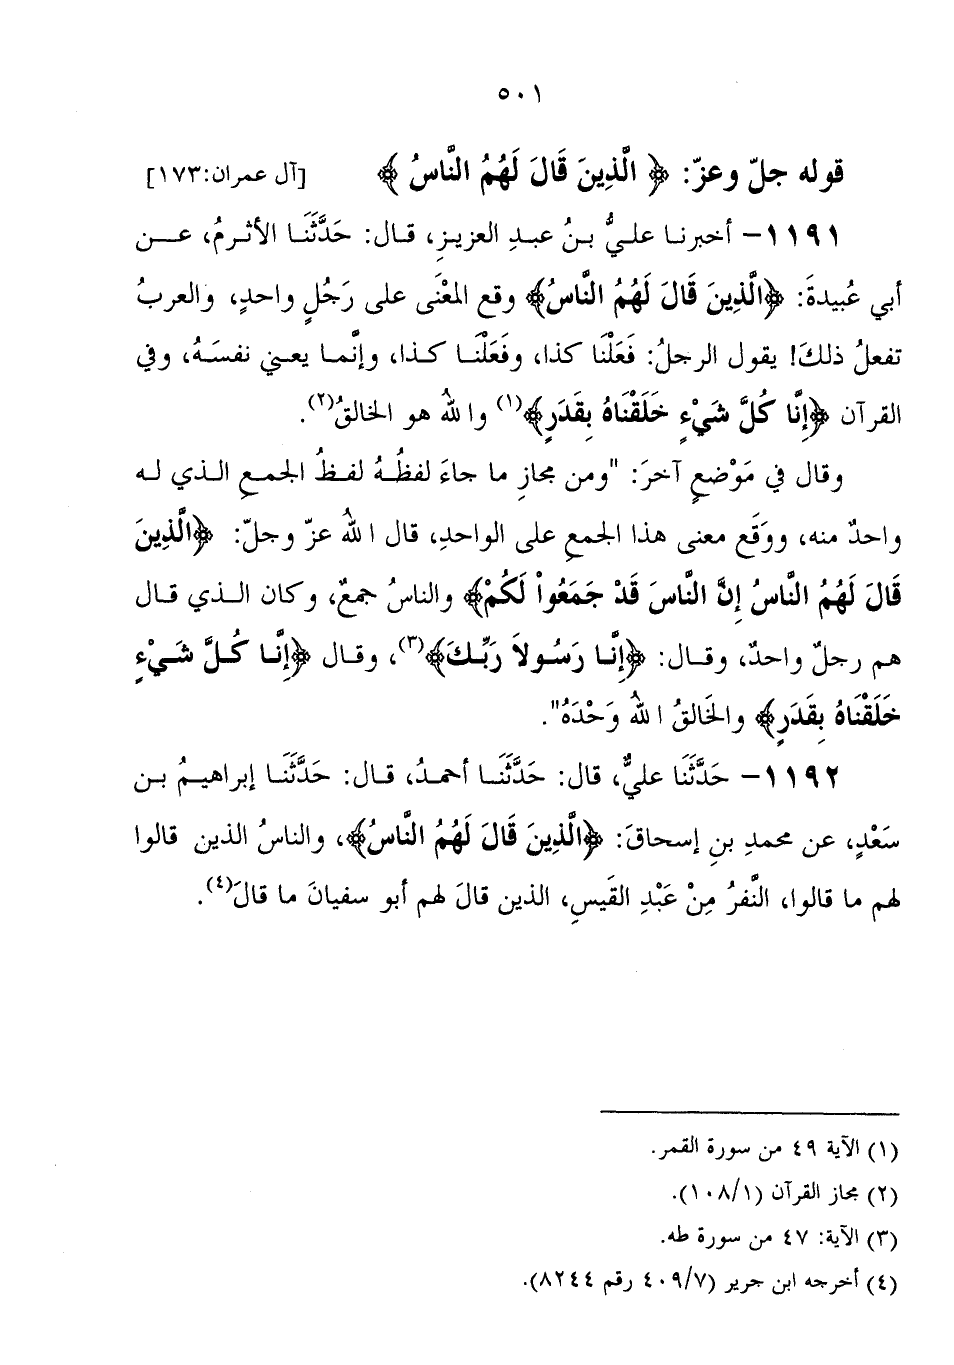 ٥٠١
قوله جلّ وعزّ: ﴿ الَّذِينَ قَالَ لَهُمُ النَّاسُ ﴾ [آل عمران:١٧٣]
١١٩١- أخبرنا عليُّ بنُ عبدِ العزيزِ، قال: حَدَّثَنَا الأثرمُ، عن
أبي عُبيدةَ: ﴿الَّذِينَ قَالَ لَهُمُ النَّاسُ﴾ وقع المعْنَى على رَجُلٍ واحدٍ، والعربُ
تفعلُ ذلكَ! يقول الرجلُ: فَعَلْنَا كذا، وفَعَلْنَا كذا، وإنَّما يعني نفسَهُ، وفي
القرآن ﴿إِنَّا كُلَّ شَيْءٍ خَلَقْنَاهُ بِقَدَرٍ﴾(١) واللهُ هو الخالقُ(٢).
وقال في مَوْضعٍ آخرَ: "ومن مجازِ ما جاءَ لفظُهُ لفظُ الجمعِ الذي له
واحدٌ منه، ووَقَع معنى هذا الجمعِ على الواحدِ، قال اللهُ عزّ وجلّ: ﴿الَّذِينَ
قَالَ لَهُمُ النَّاسُ إِنَّ النَّاسَ قَدْ جَمَعُواْ لَكُمْ﴾ والناسُ جمعٌ، وكان الذي قال
هم رجلٌ واحدٌ، وقال: ﴿إِنَّا رَسُولاَ رَبِّكَ﴾(٣)، وقال ﴿إِنَّا كُلَّ شَيْءٍ
خَلَقْنَاهُ بِقَدَرٍ﴾ والخَالقُ اللهُ وَحْدَهُ".
١١٩٢- حَدَّثَنَا عليٌّ، قال: حَدَّثَنَا أحمدُ، قال: حَدَّثَنَا إبراهيمُ بن
سَعْدٍ، عن محمدِ بنِ إسحاقَ: ﴿الَّذِينَ قَالَ لَهُمُ النَّاسُ﴾، والناسُ الذين قالوا
لهم ما قالوا، النَّفرُ مِنْ عَبْدِ القَيسِ، الذين قالَ لهم أبو سفيانَ ما قالَ(٤).
(١) الآية ٤٩ من سورة القمر.
(٢) مجاز القرآن (١٠٨/١).
(٣) الآية: ٤٧ من سورة طه.
(٤) أخرجه ابن جرير (٤٠٩/٧ رقم ٨٢٤٤).